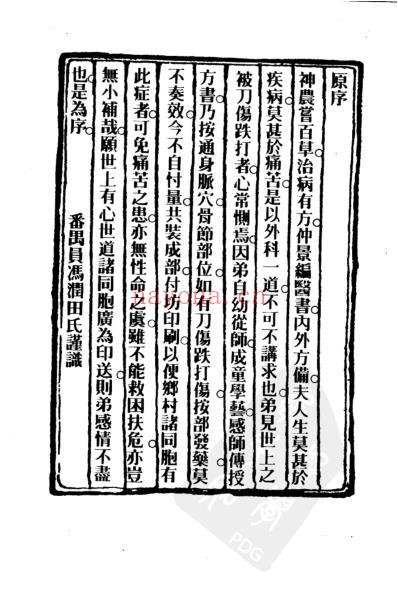 原序
神農嘗百草治病有方仲景編醫書內外方備夫人生莫甚於
疾病莫甚於痛苦是以外科一道不可不講求也弟見世上之
被刀傷跌打者心常惻焉因弟自幼從師成童學藝感師傳授
方書乃按通身脈穴骨節部位如有刀傷跌打傷按部發藥莫
不奏效今不自忖量共裝成部付功印刷以便鄉村諸同胞有
此症者可免痛苦之患亦無性命之虞雖不能救困扶危亦豈
無小補哉願世上有心世道諸同胞廣為印送則弟感情不盡
也是為序
番禺員馮潤田氏謹識
nayona.cn
PDG